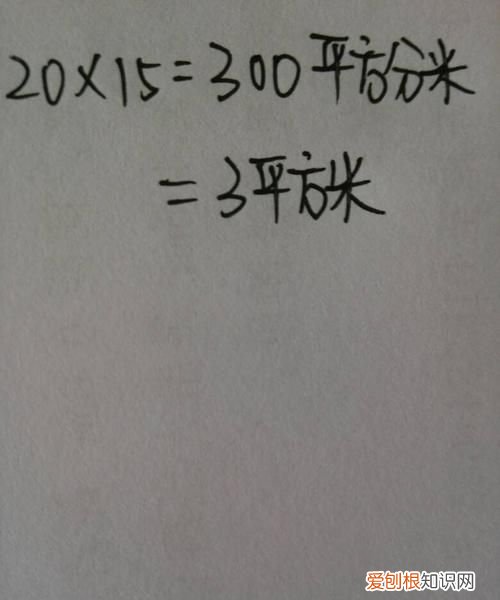 20×15=300平方分米
=3平方米
爱刨根知识网